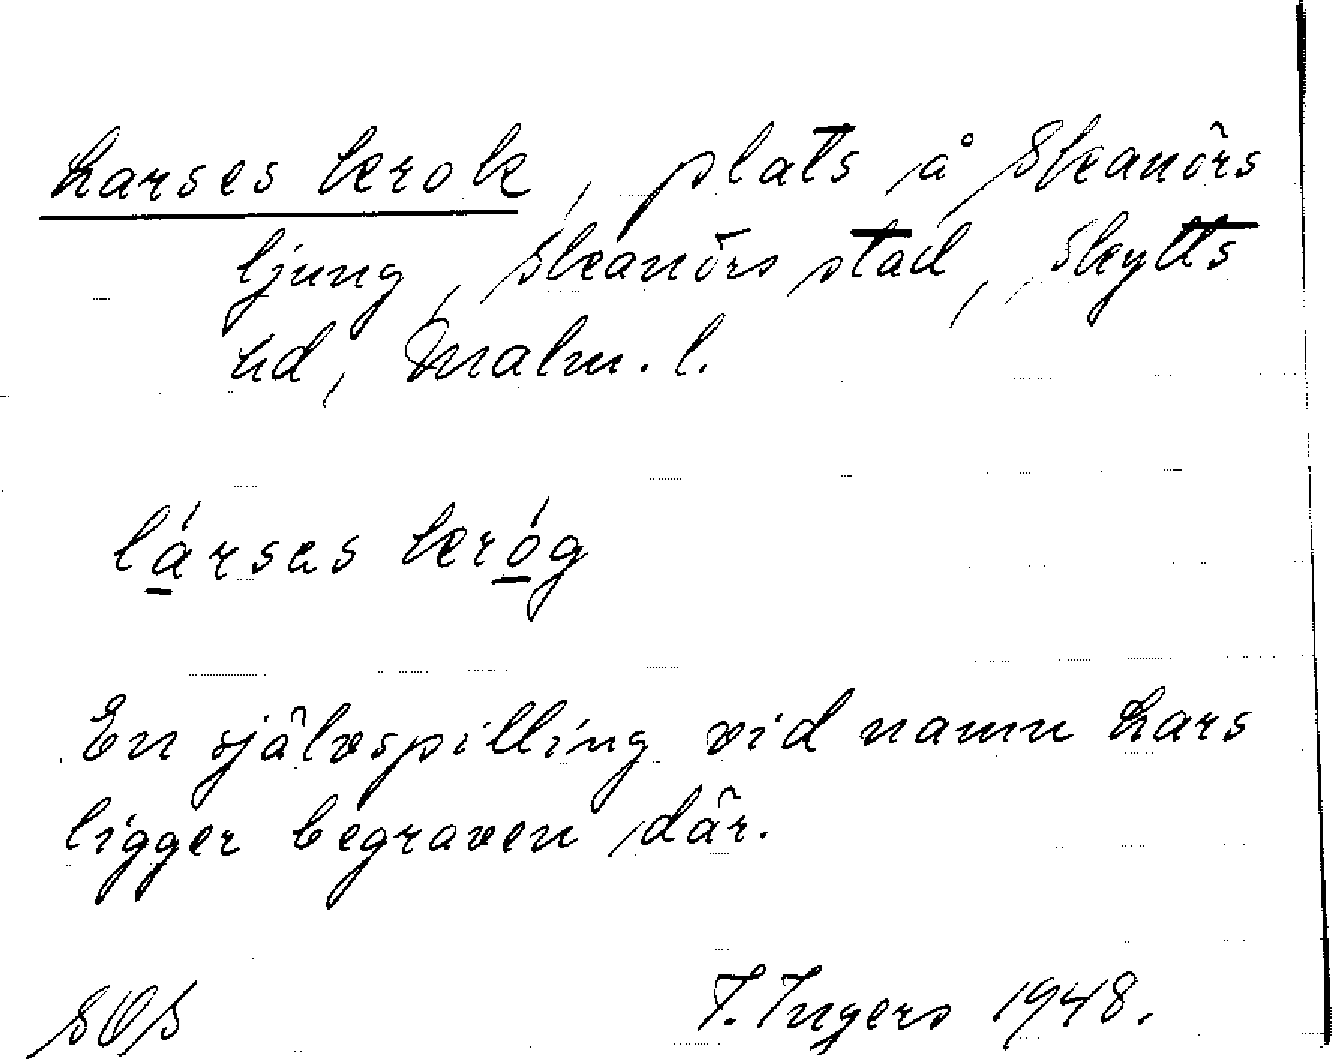 Larses krok, plats å Skanörs
ljung, Skanörs stad, Skytts
hd, Malm. l.
lárses króg
En självspilling vid namn Lars
ligger begraven där.
SOS
I. Ingers 1948.